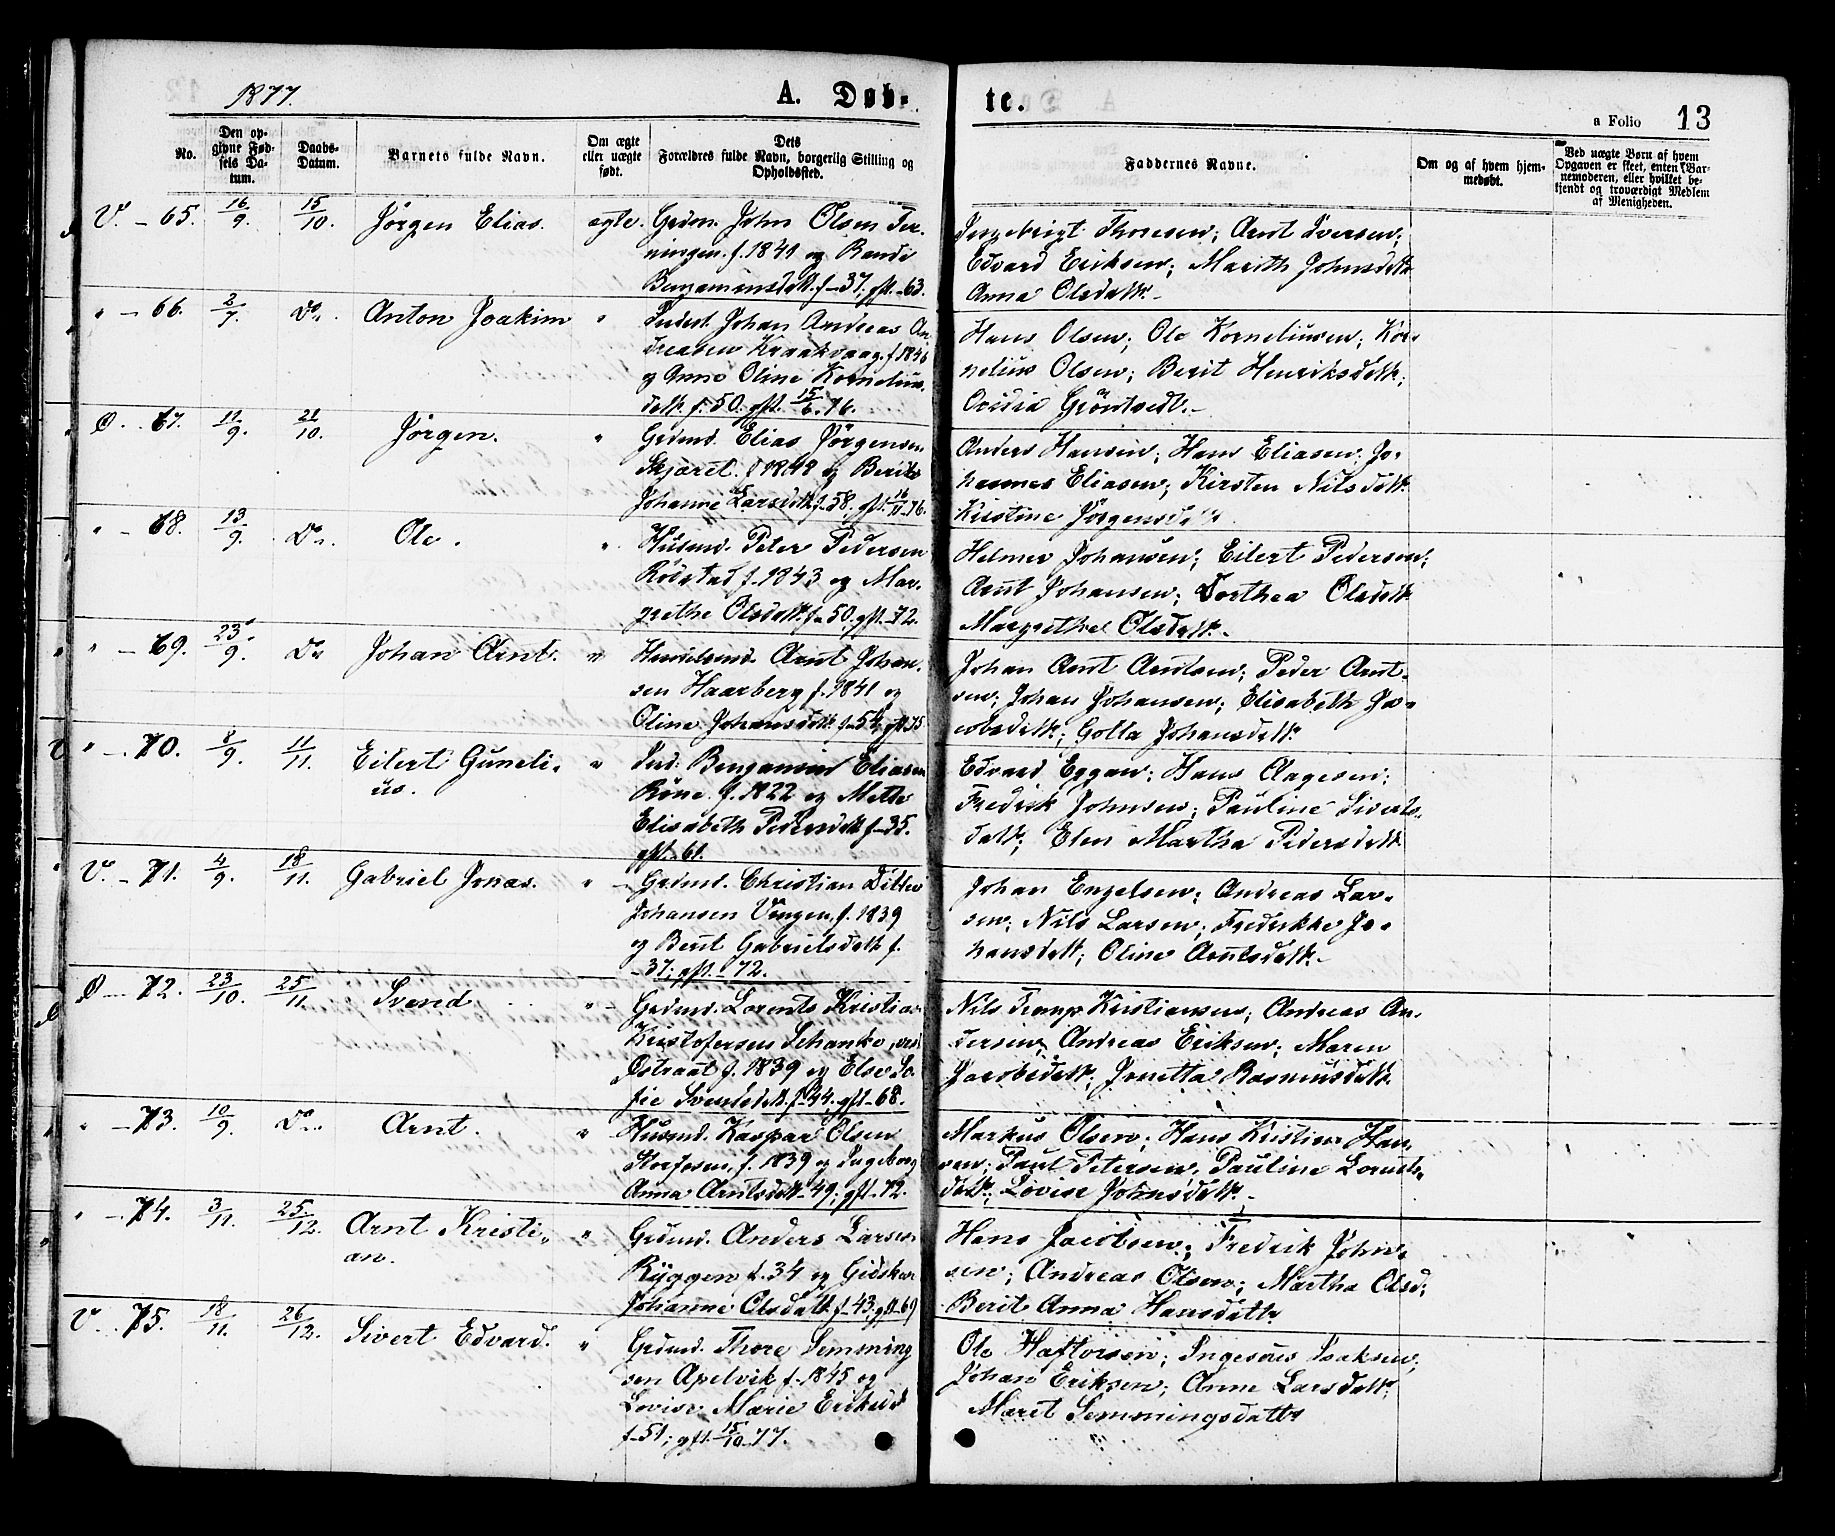 1877.
A. Døb-
te.
a Folio 13
No.
Den op-
givne Fød-
sels Da-
tum.
Daabs-
Datum.
Barnets fulde Navn.
Om ægte
eller uægte
født.
Dets
Forældres fulde Navn, borgerlig Stilling og
Opholdssted.
Faddernes Navne.
Om og af hvem hjem-
medøbt.
Ved uægte Børn af hvem
Opgaven er skeet, enten Bar-
nemoderen, eller hvilket be-
kjendt og troværdigt Medlem
af Menigheden.
V. - 65. 16/9. 15/10. Jørgen Elias. ægte. Grdm. John Olsen Ter-
ningen. f. 1841 og Randi
Benjaminsdtt. f-37, gft.-63.
Ingebrigt Thoresen; Arnt Iversen;
Edvard Eriksen; Marith Johnsdtt.
Anna Olsdatt.
" - 66. 2/7. Do. Anton Joakim " Inderst. Johan Andreas An-
dreasen Kraakvaag. f. 1846
og Anne Oline Kornelius-
datt. f. 50. gft. 15/6.76.
Hans Olsen; Ole Korneliusen; Kor-
nelius Olsen; Berit Henriksdtt.;
D. - 67. 11/9. 21/10. Jørgen. " Grdmd. Elias Jørgensen
Skjæret. f 1849 og Berith
Johanne Larsdtt. f-58, gft. 16/11-76.
Anders Hansen; Hans Eliasen; Jo-
hannes Eliasen; Kirsten Nilsdtt.
Kristine Jørgensdatt.
" - 68. 13/9. Do. Ole. " Husmd. Peter Pedersen
Rödstad f-1843 og Mar-
grethe Olsdatt. f-50, gft.-72.
Helmer Johansen; Eilert Pedersen;
Arnt Johansen; Dorthea Olsdatt.
Margrethe Olsdatt.
" - 69. 23/9. Do Johan Arnt. " Arnt Johan-
sen Haarberg f. 1841 og
Oline Johansdatt. f-54, gft.75
Johan Arnt Arntsen; Peder Arnt-
sen; Johan Johansen; Elisabeth Ja-
cobsdatt.; Golla Johansdatt.
" - 70. 8/9. 11/11. Eilert Guneli-
us. " Ind. Benjamin Eliasen
Röne. f. 1822 og Mette
Elisabeth Pedersdatt f-35.
gft.-61.
Edvard Eggan; Hans Aagesen;
Fredrik Johnsen; Pauline Siverts-
datt; Elen Martha Pedersdatt
V. - 71. 4/9. 18/11. Gabriel Jonas. " Grdmd. Christian Ditlev
Johansen Vingen, f. 1839
og Berit Gabrielsdatt f.
-37; gft.-72.
Johan Engelsen; Andreas Lar-
sen; Nils Larsen; Fredrikke Jo-
hansdatt; Oline Arntsdatt.
D - 72. 23/10. 25/11. Svend " Grdmd. Lorents Kristian
Kristofersen Schanke, ved
Østraat f. 1839 og Else So-
fie Svendsdatt. f-44. gft-68.
Nils Kristiansen; Andreas An-
dersen; Andreas Eriksen; Maren
Jacobsdatt; Jonetta Rasmusdatt.
" - 73. 10/9. Do. Arnt. " Husmd. Kaspar Olsen
f. 1839 og Ingeborg
Anna Arntsdatt-49; gft-72.
Markus Olsen; Hans Kristian Han-
sen; Paul Petersen, Pauline Lornts-
datt.; Lovise Johnsdatt.
" - 74. 3/11. 25/12. Arnt Kristi-
an. " Grdmd. Anders Larsen
Ryggen f. 34 og Gidskar
Johanne Olsdatt f-43, gft-69
Hans Jacobsen; Fredrik John-
sen; Andreas Olsen; Martha Olsd.
Berit Anna Hansdatte
V. - 75. 18/11. 26/12. Sivert Edvard. " Grdmd. Thore Semming
sen Apelvik f-1845 og
Lovise Marie Eriksd
f-51; gft. 15/10-77.
Ole Haftorsen; Isaksen;
Johan Eriksen; Anne Larsdatt;
Maret Semmingsdatte